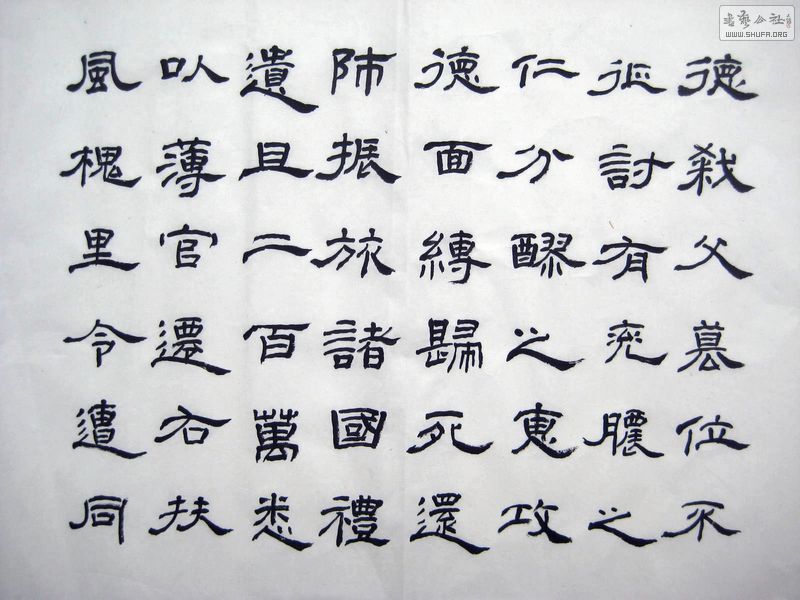 德弒父篡位不
征討有兗膿之
仁分醪之惠攻
德面縛歸死還
師振旅諸國禮
遺且二百萬悉
以薄官遷右扶
風槐里令遭同
书艺公社
WWW.SHUFA.ORG